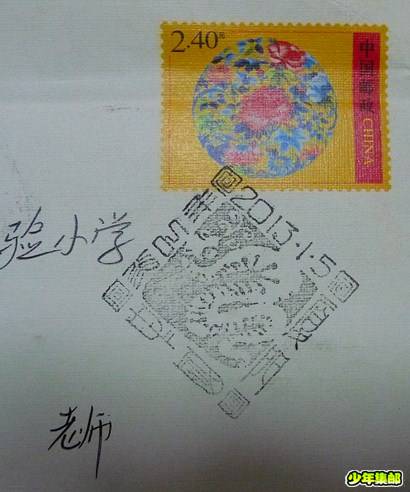 2.40元
中国邮政
CHINA
2013.1.5
验小学
老师
少年集邮